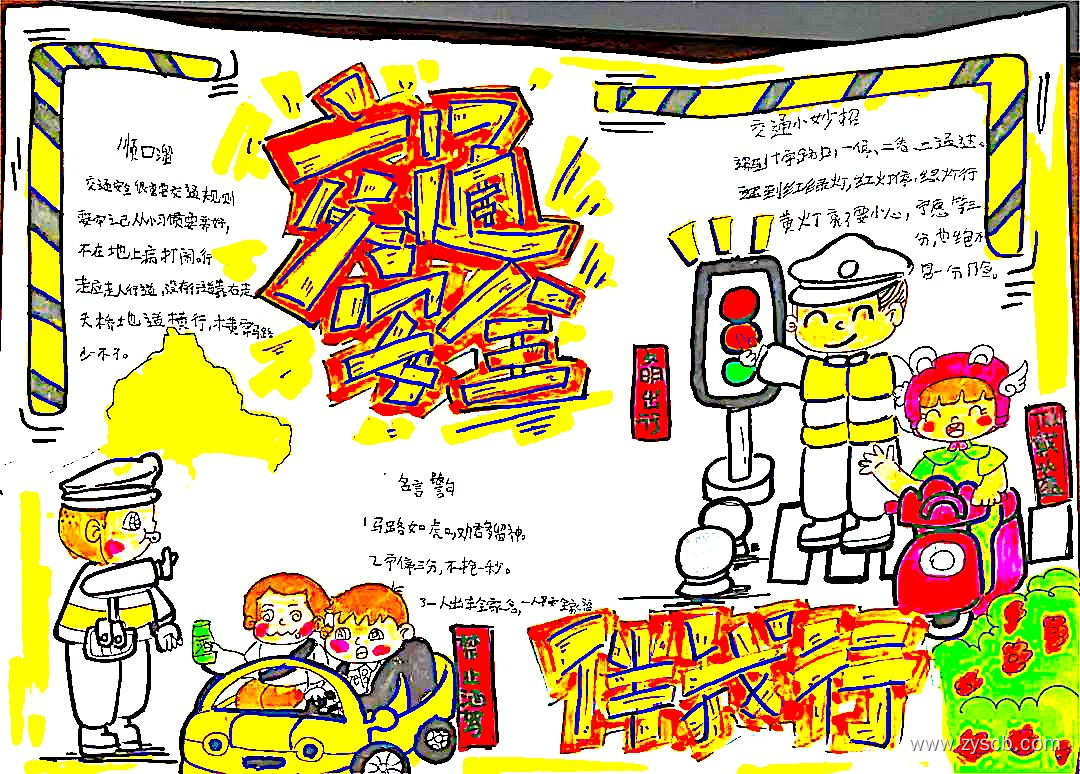 顺口溜
交通安全很重要交通规则
要牢记从小习惯要养好,
不在地上病打闹。行
走应走人行道,没有行道靠右走
天桥地道横行,横穿马路
少不了。
交通安全
交通小妙招
遇到十字路口,一停、二看、三通过。
遇到红绿灯,红灯停,绿灯行
黄灯亮了要小心,宁愿等三
分,也绝不
冒一分险。
文明出行
佩戴头盔
名言警句
1马路如虎口,劝君多留神。
2宁停三分,不抢一秒。
3一人出车全家念,一人平安全家福
禁止酒驾
伴我行
www.zyscb.com